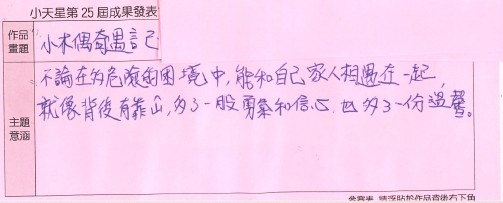 小天星第25屆成果發表
作品畫題
小木偶奇遇記
主題意涵
不論在的危險的困境中,能和自己家人相遇在一起,
就像背後有靠山,多了一股勇氣和信心,也多了一份溫馨。